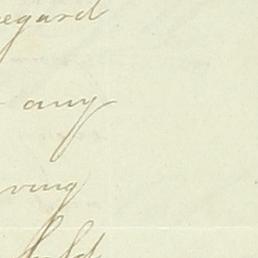 regard
any
ving